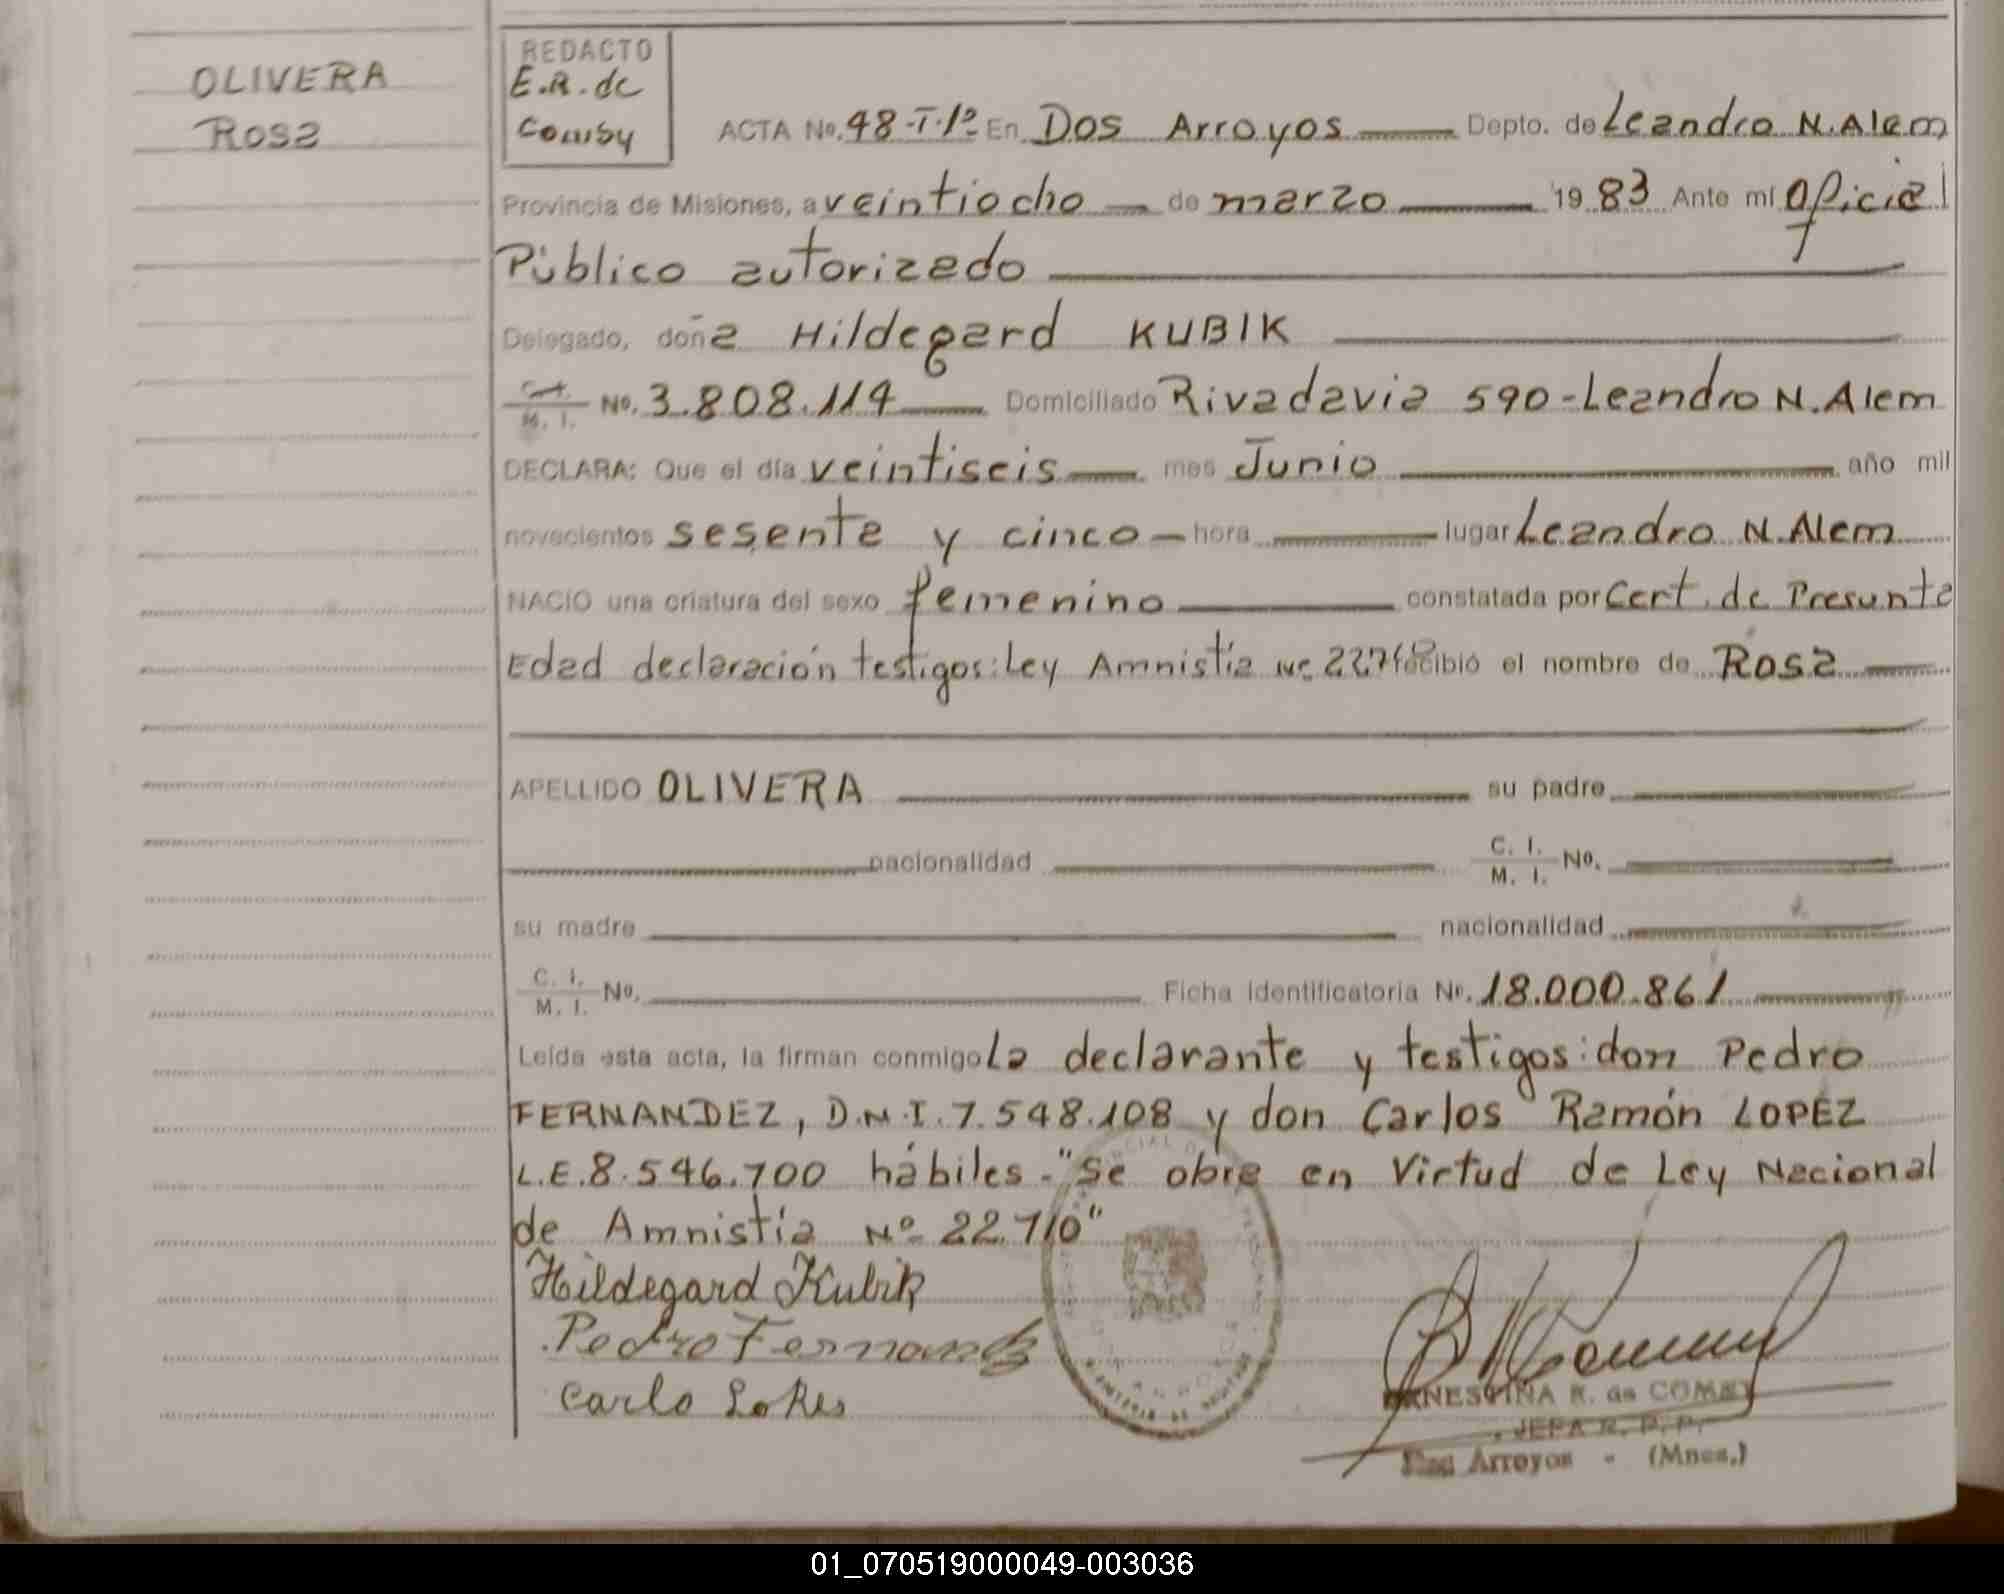 OLIVERA
Rosa
REDACTO
E.R. de
Comby
ACTA No. 48-T-1º En Dos Arroyos Depto. de Leandro N. Alem
Provincia de Misiones, a veintiocho de marzo 1983 Ante mi Oficial
Público autorizado
Delegado, doña Hildegard KUBIK
C. I.
M. I. No. 3.808.114 Domiciliado Rivadavia 590-Leandro N. Alem
DECLARA: Que el día veintiseis mes Junio año mil
novecientos sesenta y cinco hora lugar Leandro N. Alem
NACIO una criatura del sexo femenino constatada por Cert. de Presunta
Edad declaración testigos: Ley Amnistía Nº 22.710 recibió el nombre de Rosa
APELLIDO OLIVERA su padre
nacionalidad C. I.
M. I. No.
su madre nacionalidad
C. I.
M. I. No. Ficha Identificatoria Nº. 18.000.861
Leída esta acta, la firman conmigo La declarante y testigos: don Pedro
FERNANDEZ, D.N.I. 7.548.108 y don Carlos Ramón LOPEZ
L.E. 8.546.700 hábiles.-"Se obra en Virtud de Ley Nacional
de Amnistía Nº 22.710"
Hildegard Kubik
Pedro Fernandez
Carlo Lopes
ERNESTINA R. de COMBY
JEFA R. P. P.
Dos Arroyos - (Mnes.)
01_070519000049-003036